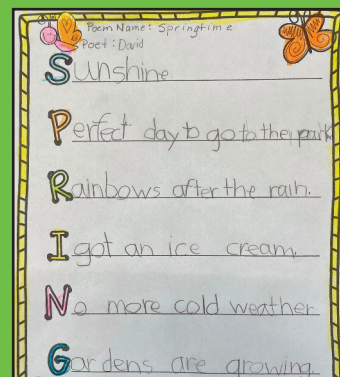 Poem Name: Springtime
Poet: David
Sunshine
Perfect day to go to the park
Rainbows after the rain.
I got an ice cream.
No more cold weather
Gardens are growing.